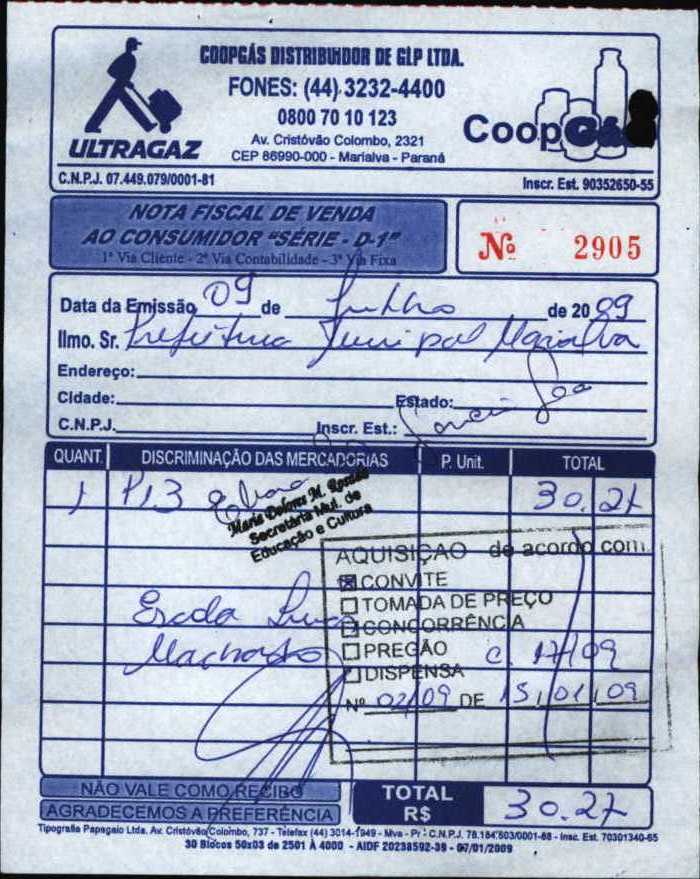 COOPGÁS DISTRIBUIDOR DE GLP LTDA.
FONES: (44) 3232-4400
0800 70 10 123
Av. Cristóvão Colombo, 2321
CEP 86990-000 - Marialva - Paraná
ULTRAGAZ
CoopGás
C.N.P.J. 07.449.079/0001-81
Inscr. Est. 90352650-55
NOTA FISCAL DE VENDA
AO CONSUMIDOR "SÉRIE - D-1"
1ª Via Cliente - 2ª Via Contabilidade - 3ª Via Fixa
Nº 2905
Data da Emissão 09 de Julho de 2009
Ilmo. Sr. Prefeitura Municipal Marialva
Endereço:
Cidade: Estado:
C.N.P.J. Inscr. Est.:
QUANT. DISCRIMINAÇÃO DAS MERCADORIAS P. Unit. TOTAL
1 P13 30.27
Secretária Mul. de
Educação e Cultura
AQUISIÇAO de acordo com
CONVITE
TOMADA DE PREÇO
Escola
CONCORRÊNCIA
Machado
PREGÃO C. 17/09
DISPENSA
Nº 02/09 DE 15/01/09
NÃO VALE COMO RECIBO
AGRADECEMOS A PREFERÊNCIA
TOTAL
R$ 30.27
Tipografia Papagaio Ltda. Av. Cristóvão Colombo, 737 - Telefax (44) 3014-1949 - Mva - Pr - C.N.P.J. 78.184.603/0001-68 - Insc. Est. 70301340-65
30 Blocos 50x03 de 2501 À 4000 - AIDF 20238592-39 - 07/01/2009